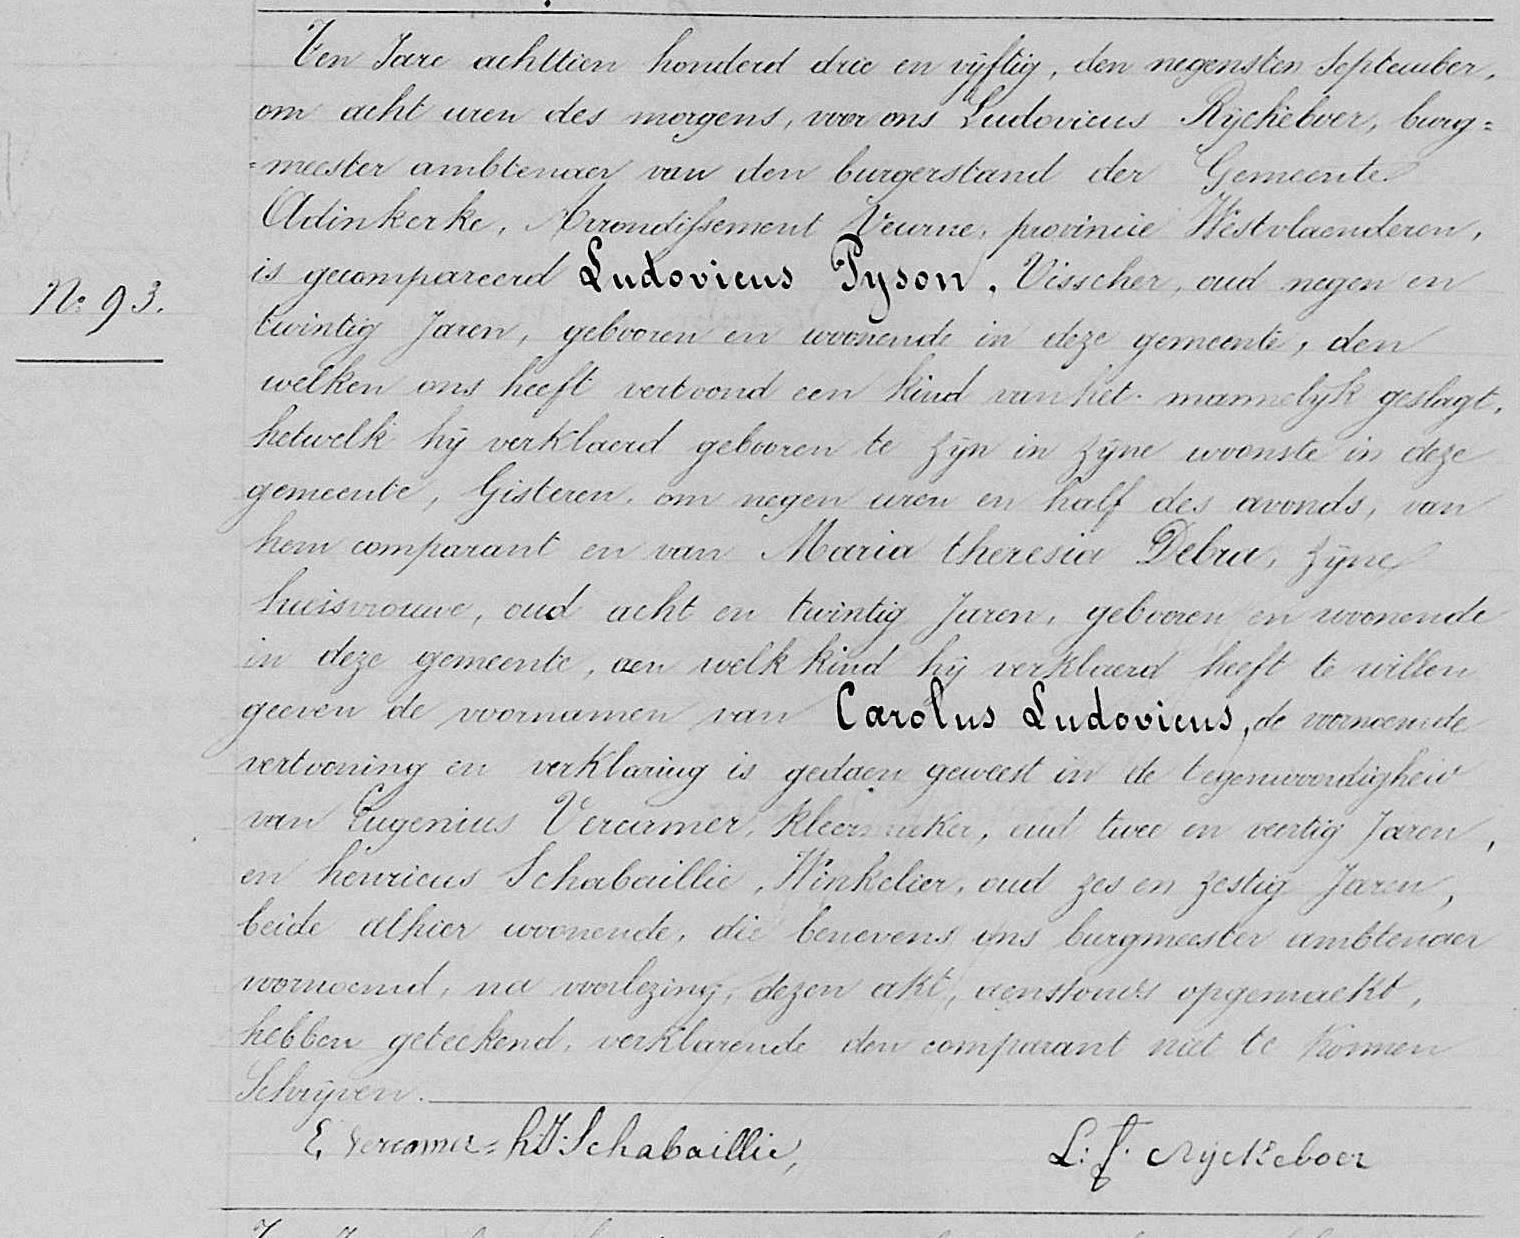 Ten Jare achttien honderd drie en vyftig, den negensten September,
om acht uren des morgens, voor ons Ludovicus Ryckeboer, burg=
=meester ambtenaer van den burgerstand der Gemeente
Adinkerke, Arrondissement Veurne, provincie Westvlaenderen,
is gecompareerd Ludovicus Pyson, Visscher, oud negen en
N.º 93.
twintig Jaren, gebooren en woonende in deze gemeente, den
welken ons heeft vertoond een kind van het mannelyk geslagt,
hetwelk hy verklaerd gebooren te zyn in zyne woonste in deze
gemeente, Gisteren, om negen uren en half des avonds, van
hem comparant en van Maria theresia Debra, zyne
huisvrouwe, oud acht en twintig Jaren, gebooren en woonende
in deze gemeente, aen welk kind hy verklaerd heeft te willen
geeven de voornamen van Carolus Ludovicus, de voornoemde
vertooning en verklaring is gedaen geweest in de tegenwoordigheid
van Eugenius Vercamer, kleermaker, oud twee en veertig Jaren,
en henricus Schabaillie, Winkelier, oud zes en zestig Jaren,
beide alhier woonende, die benevens ons burgmeester ambtenaer
voornoemd, na voorlezing, dezen akt, aenstonds opgemaekt,
hebben geteekend, verklarende den comparant niet te konnen
Schryven.
E, Vercamer= h.J. Schabaillie, L: f. Ryckeboer